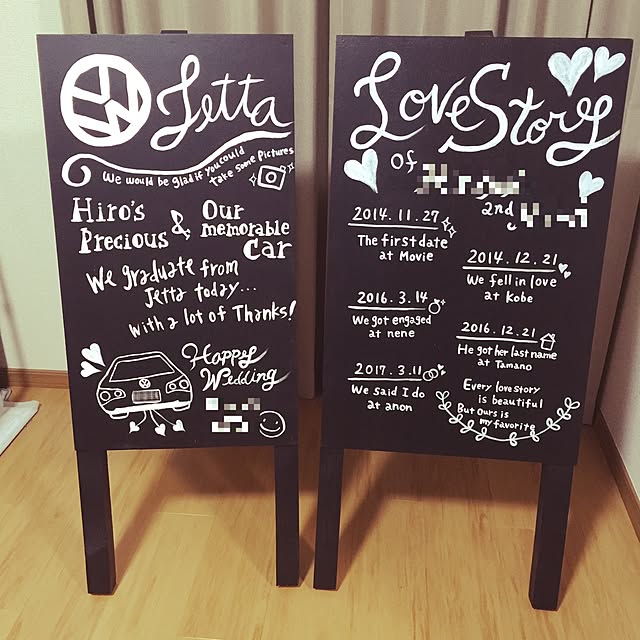 Jetta
We would be glad if you could
take some pictures
Hiro's
Precious
&
Our
memorable
car
We graduate from
Jetta today...
with a lot of Thanks!
Happy
Wedding
Love Story
of
and
2014.11.27
The first date
at Movie
2014.12.21
We fell in love
at Kobe
2016.3.14
We got engaged
at nene
2016.12.21
He got her last name
at Tamano
2017.3.11
We said I do
at anon
Every love story
is beautiful
But ours is
my favorite